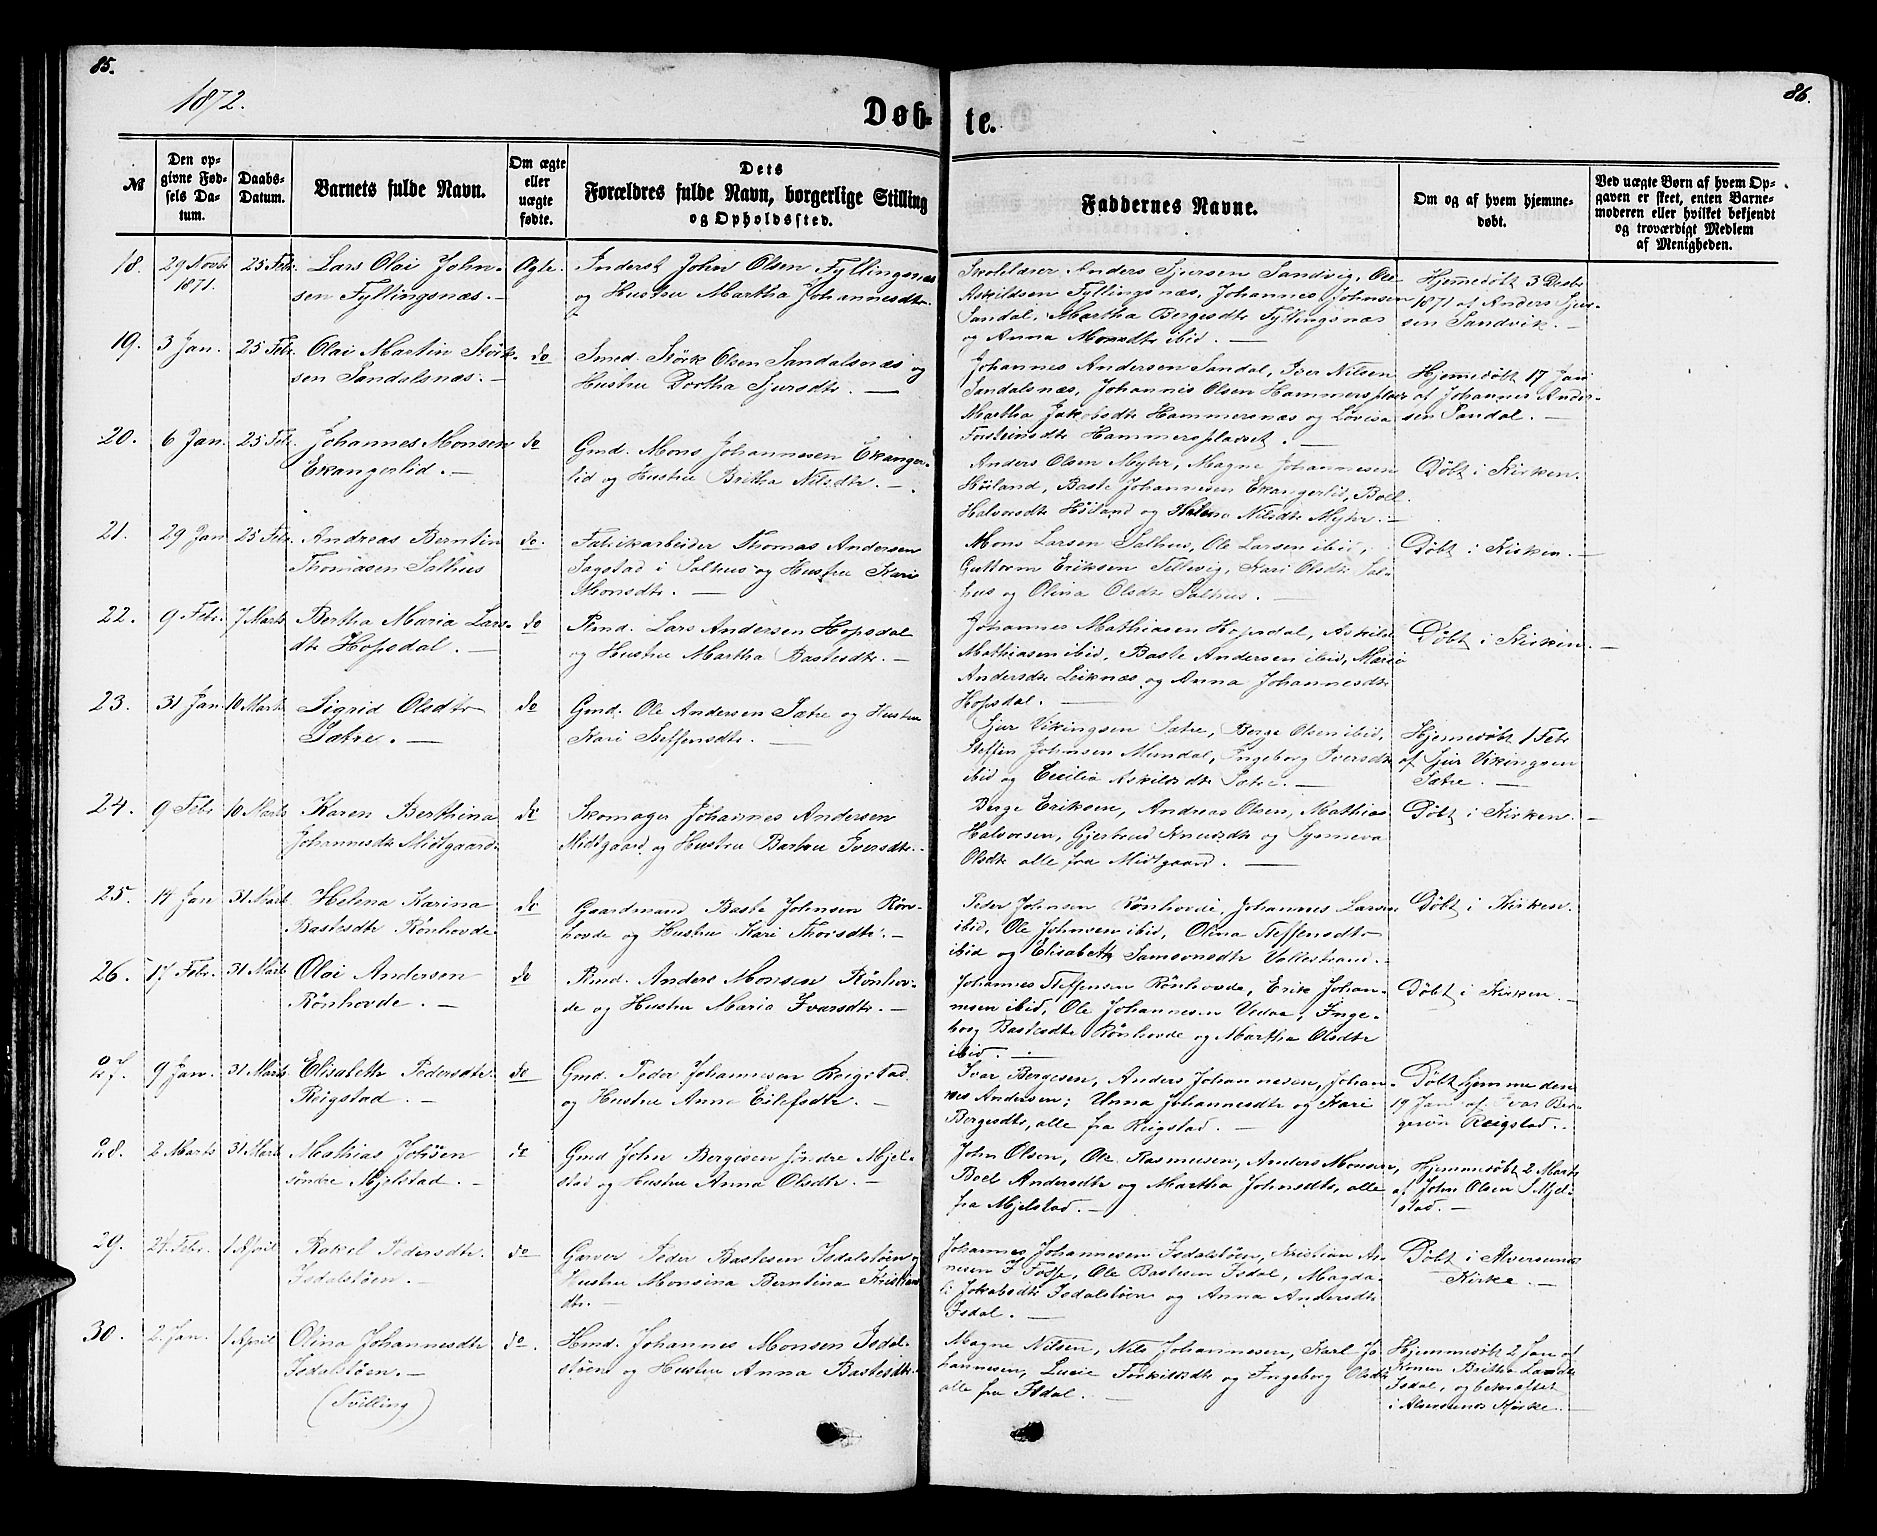 85.
86.
1872.
Døb-
te.
№
Den op-
givne Fød-
sels Da-
tum.
Daabs-
Datum.
Barnets fulde Navn.
Om ægte
eller
uægte
fødte.
Dets
Forældres fulde Navn, borgerlige Stilling
og Opholdssted.
Faddernes Navne.
Om og af hvem hjemme-
døbt.
Ved uægte Børn af hvem Op-
gaven er skeet, enten Barne-
moderen eller hvilket bekjendt
og troværdigt Medlem
af Menigheden.
18. 29 Novbr 25 Febr. Lars Olai John- Ægte. Inderst John Olsen Fyllingsnæs
1871. sen Fyllingsnæs. — og Hustru Martha Johannesdtr.
Skolelærer Anders Sjursen Sandvig, Ole
Askildsen Fyllingsnæs, Johannes Johnsen
Sandal, Martha Bergesdtr Fyllingsnæs
og Anna Monsdtr ibid. —
Hjemmedøbt 3 Decbr
1871 af Anders Sjur-
sen Sandvik. —
19. 3 Jan. 25 Febr. Olai Martin Størk- do Smed. Størk Olsen Sandalsnæs og
sen Sandalsnæs. — Hustru Dorthea Sjursdtr. —
Johannes Andersen Sandal, Iver Nilsen
Sandalsnæs, Johannes Olsen Hammersplads
Martha Jakobsdtr Hammersnæs og Lovisa
Torsteinsdtr Hammerspladset. —
Hjemmedøbt 17 Jan
af Johannes Ander-
sen Sandal. —
20. 6 Jan. 25 Febr. Johannes Monsen do Gmd. Mons Johannesen Ekanger-
Ekangerlid. — lid og Hustru Britha Nilsdtr. —
Anders Olsen Myhr, Magne Johannesen
Høiland, Baste Johannesen Ekangerlid, Boel
Halvorsdtr Høiland og Helena Nilsdtr Myhr. —
Døbt i Kirken.
21. 29 Jan 25 Febr. Andreas Berntin do. Fabrikarbeider Thomas Andersen
Thomasen Salhus Sagstad i Salhus og Hustru Kari
Monsdtr. —
Mons Larsen Salhus, Ole Larsen ibid,
Guttorm Eriksen Tellevig, Kari Olsdtr Sal-
hus og Olina Olsdtr Salhus. —
Døbt i Kirken. —
22. 9 Febr. 7 Marts Bertha Maria Lars- do Pmd. Lars Andersen Hopsdal
dtr Hopsdal. — og Hustru Martha Bastesdtr. —
Johannes Mathiasen Hopsdal, Askild
Mathiasen ibid, Baste Andersen ibid, Maria
Andersdtr Leiknæs og Anna Johannesdtr
Hopsdal. —
Døbt i Kirken. —
23. 31 Jan 10 Marts Sigrid Olsdtr do Gmd. Ole Andersen Sætre og Hustru
Sætre. — Kari Steffensdtr. —
Sjur Vikingsen Sætre, Berge Olsen ibid,
Steffen Johnsen Mundal, Ingeborg Iversdtr
ibid og Cecilia Askildsdtr Sætre. —
Hjemmedøbt 1 Febr
af Sjur Vikingsen
Sætre. —
24. 9 Febr 10 Marts Karen Berthina do Skomager Johannes Andersen
Johannesdtr Midtgaard. Midtgaard og Hustru Barbru Iversdtr. —
Berge Eriksen, Andreas Olsen, Mathias
Halvorsen, Gjertrud Knudsdtr og Synneva
Olsdtr alle fra Midtgaard. —
Døbt i Kirken. —
25. 14 Jan 31 Marts Helena Karina do Gaardmand Baste Johnsen Røn-
Bastesdtr Rønhovde. hovde og Hustru Kari Thorsdtr. —
Peder Johnsen Rønhovde, Johannes Larsen
ibid, Ole Johnsen ibid, Olina Steffensdtr
ibid og Elisabeth Samsonsdtr Vallestrand. —
Døbt i Kirken.
26. 17 Febr. 31 Marts Olai Andersen do Pmd. Anders Monsen Rønhov-
Rønhovde. — de og Hustru Maria Ivarsdtr. —
Johannes Steffensen Rønhovde, Erik Johan-
nesen ibid, Ole Johannesen Vedaa, Inge-
borg Bastesdtr Rønhovde og Martha Olsdtr
ibid. —
Døbt i Kirken. —
27. 9 Jan. 31 Marts Elisabeth Pedersdtr do Gmd. Peder Johannesen Reigstad
Reigstad. — og Hustru Anna Eilefsdtr. —
Ivar Bergesen, Anders Johannesen, Johan-
nes Andersen, Unna Johannesdtr og Kari
Bergesdtr, alle fra Reigstad. —
Døbt hjemme den
19 Jan af Ivar Ber-
gesøn Reigstad. —
28. 2 Marts 31 Marts Mathias Johnsen do Gmd John Bergesen søndre Mjel-
søndre Mjelstad. — stad og Hustru Anna Olsdtr. —
John Olsen, Ole Rasmusen, Anders Monsen,
Boel Andersdtr og Martha Johnsdtr, alle
fra Mjelstad. —
Hjemmedøbt 2 Marts
af John Olsen S Mjel-
stad. —
29. 24 Febr. 1 April Rakel Pedersdtr. do Garver Peder Bastesen Isdalstøen og
Isdalstøen. — Hustru Monsina Berntina Kristians
dtr. —
Johannes Johannesen Isdalstøen, Kristian Ar-
nesen I Fosse, Ole Bastesen Isdal, Magda-
li Jakobsdtr Isdalstøen og Anna Andersdtr
Isdal. —
Døbt i Alversunds
Kirke. —
30. 2 Jan. 1 April Olina Johannesdtr do. Hmd. Johannes Monsen Isdal-
Isdalstøen. — støen og Hustru Anna Bastesdtr. —
(Tvilling)
Magne Nilsen, Nils Johannesen, Karl Jo-
hannesen, Lucie Torkildsdtr og Ingeborg Olsdtr
alle fra Isdal. —
Hjemmedøbt 2 Jan af
Konen Britha Larsdtr
Isdal, og bekræftet
i Alversunds Kirke. —